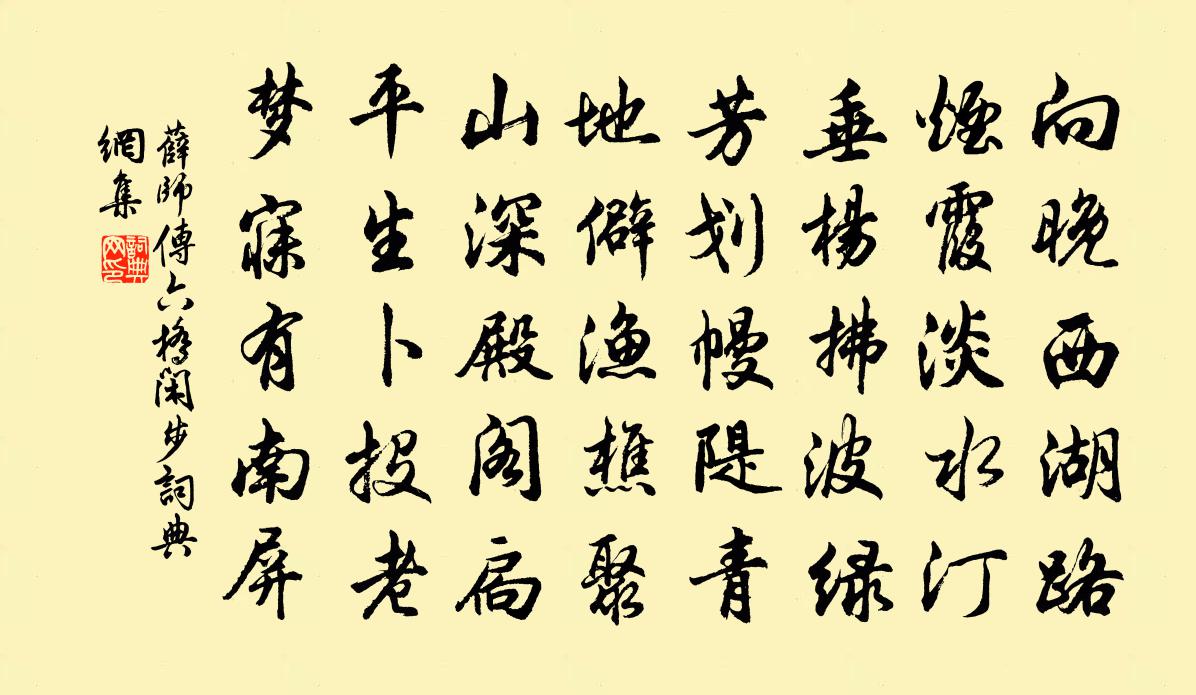 向晚西湖路
煙霞淡水汀
垂楊拂波绿
芳划幔隄青
地僻漁樵聚
山深殿阁扃
平生卜投老
梦寐有南屏
薛師傳六橋閑步詞典
網集
詞典网印